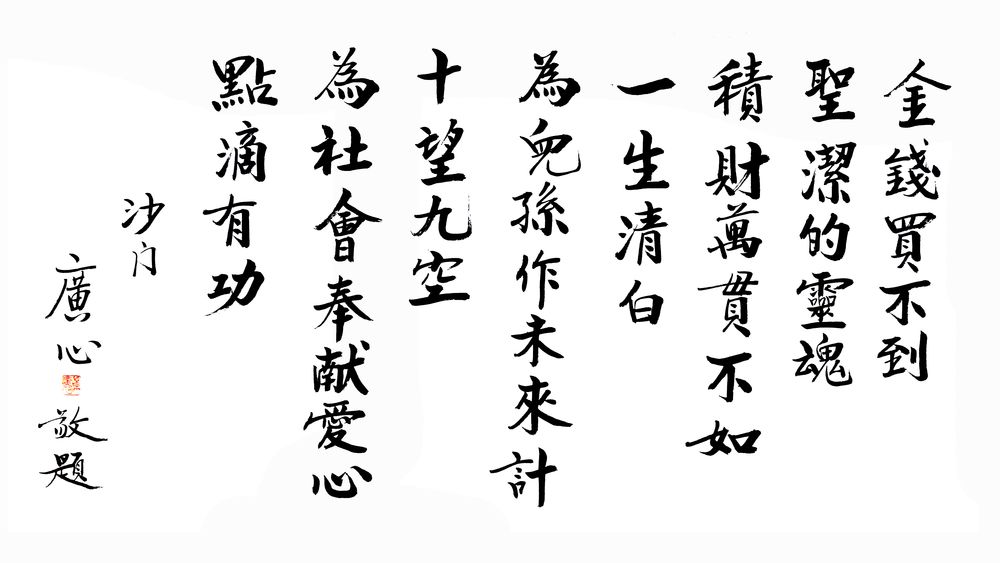 金錢買不到
聖潔的靈魂
積財萬貫不如
一生清白
為兒孫作未來計
十望九空
為社會奉献愛心
點滴有功
沙门
廣心
敬題